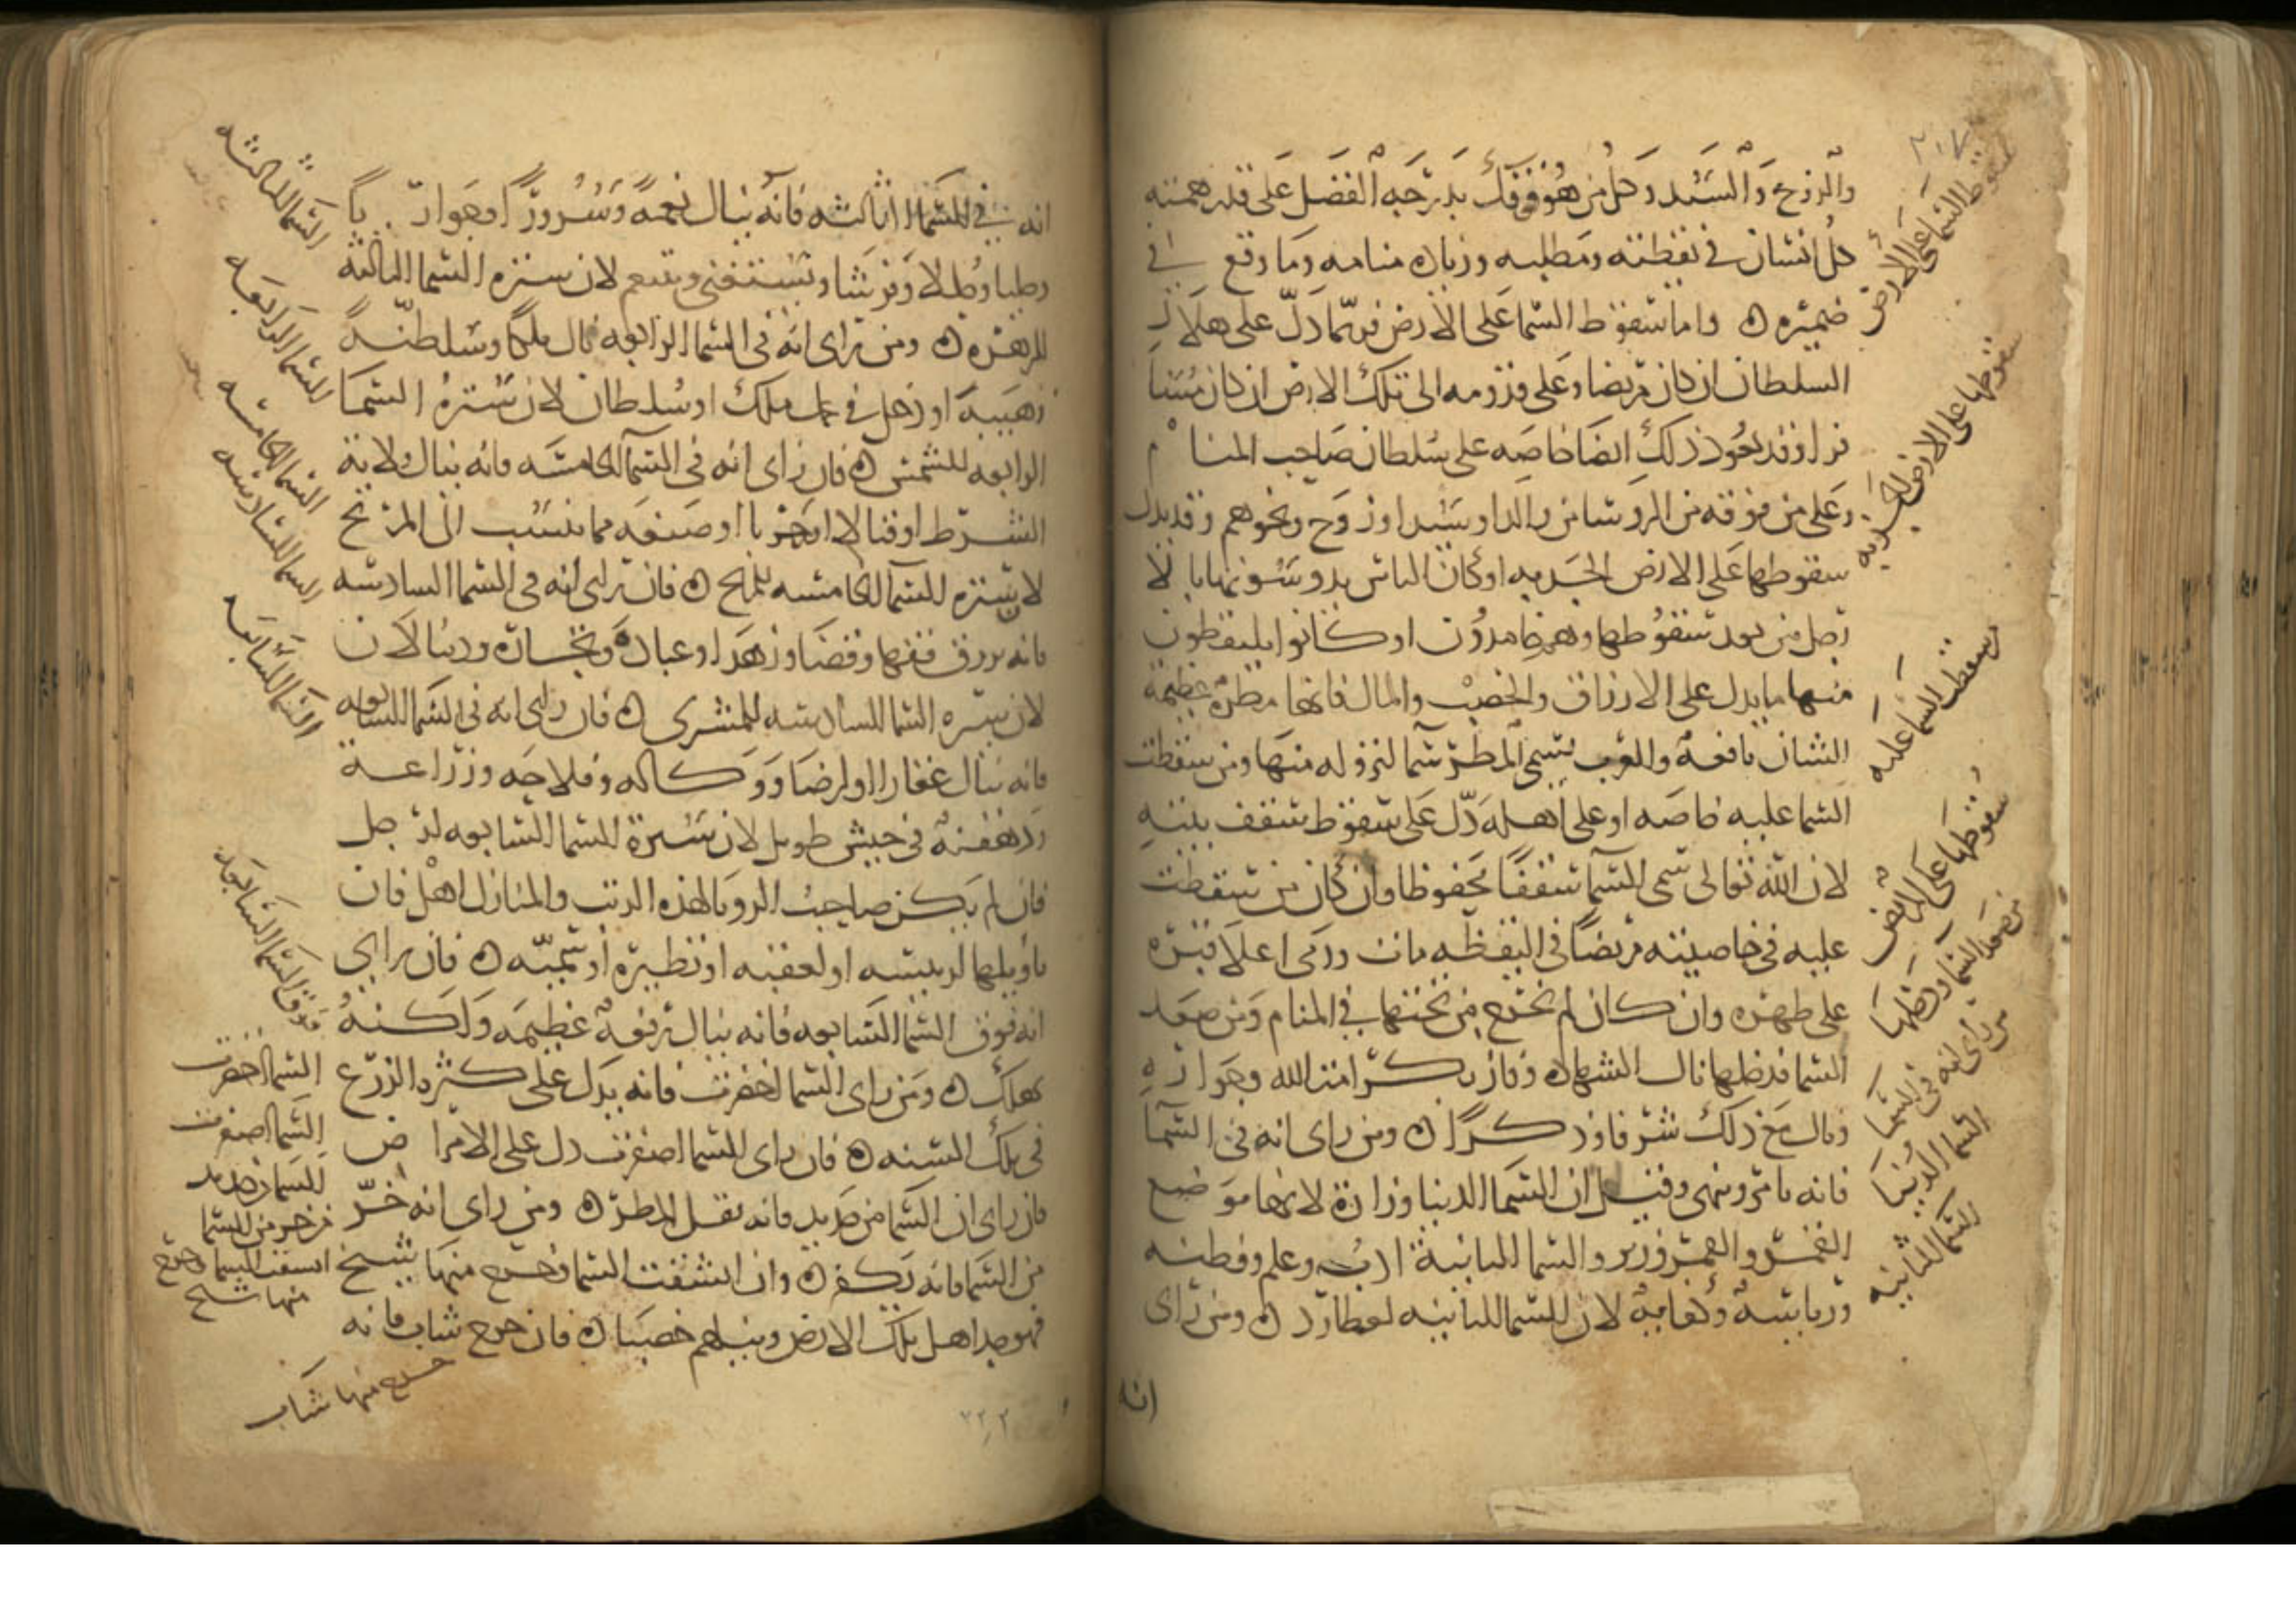 والزوج والسيد وكل من هو فوقك بدرجة الفضل على قدر همته
كل انسان في يقظته ومطلبه وزيادة منامه وما وقع في
ضميره ه واما سقوط السما على الارض فربما دل على هلاك
السلطان ان كان مريضا وعلى قدومه الى تلك الارض ان كان مسا
فرا وقد يعود ذلك ايضا خاصه على سلطان صاحب المنام
وعلى من فوقه من الروسا من والد او سيد او زوج ونحوهم وقد يدل
سقوطها على الارض الجدبه او كان الناس يدوسونها بالا
رجل من بعد سقوطها وهم حامدون او كانوا يلتقطون
منها ما يدل على الارزاق والخصب والمال فانها مطرة عظيمة
الشان نافعة والعرب تسمى المطر سما لنزوله منها ومن سقطت
السما عليه خاصه او على اهله دل على سقوط سقف بيته
لان الله تعالى سمى السما سقفا محفوظا وان كان من سقطت
عليه في خاصيته مريضا في اليقظه مات ورمى اعلا قبره
على ظهره وان كان لم يخرج من تحتها في المنام ومن صعد
السما فدخلها نال الشهاده وفاز بكرامت الله وجواره
ونال مع ذلك شرفا وذكرا ه ومن راى انه في السما
فانه يامر وينهى وقيل ان السما الدنيا وزارة لانها موضع
القمر والقمر وزير والسما الثانية ادب وعلم وفطنه
ورياسة وكفاية لان السما الثانيه لعطارد ه ومن راى
انه
سقوط السما على الارض
سقوطها على الارض الجدبه
سقطت السما عليه
سقوطها على المريض
من صعد السما ودخلها
من راى انه في السما
السما الدنيا
السما الثانيه
انه في السما الثالثه فانه ينال نعمة وسرورا وجوار يا
وحليا وحللا وفرشا ويستغنى ويتنعم لان سيره السما الثالثه
للزهره ه ومن راى انه في السما الرابعه نال ملكا وسلطنة
وهيبة او دخل في ملك او سلطان لان سيرة السما
الرابعه للشمس ه فان راى انه في السما الخامسه فانه ينال ولاية
الشرط او قتالا او حربا او صنعه مما ينسب الى المريخ
لان سيره السما الخامسه للمريخ ه فان راى انه في السما السادسه
فانه يرزق فقها وقضا وزهدا وعبادة وتجارة
لان سيره السما السادسه للمشترى ه فان راى انه في السما السابعه
فانه ينال عقارا او ارضا ووكاله وفلاحه وزراعة
ودهقنة في جيش طويل لان سيرة السما السابعه لزحل
فان لم يكن صاحب الرويا لهذه الرتب والمنازل اهل فان
تاويلها لرييسه او لعقبه او نظيره او سميه ه فان راى
انه فوق السما السابعه فانه ينال رفعة عظيمه ولكنه
يهلك ه ومن راى السما اخضرت فانه يدل على كثره الزرع
في تلك السنه ه فان راى السما اصفرت دل على الامراض
فان راى ان السما من حديد فانه يقل المطر ه ومن راى انه خر
من السما فانه يكفر ه وان انشقت السما فخرج منها شيخ
فهو جد اهل تلك الارض ونيلهم خصبا ه فان خرج شاب فانه
السما الثالثه
السما الرابعه
السما الخامسه
السما السادسه
السما السابعه
فوق السما السابعه
السما اخضرت
السما اصفرت
السما حديد
من خر من السما
انشقت السما وخرج
منها شيخ
خرج منها شاب